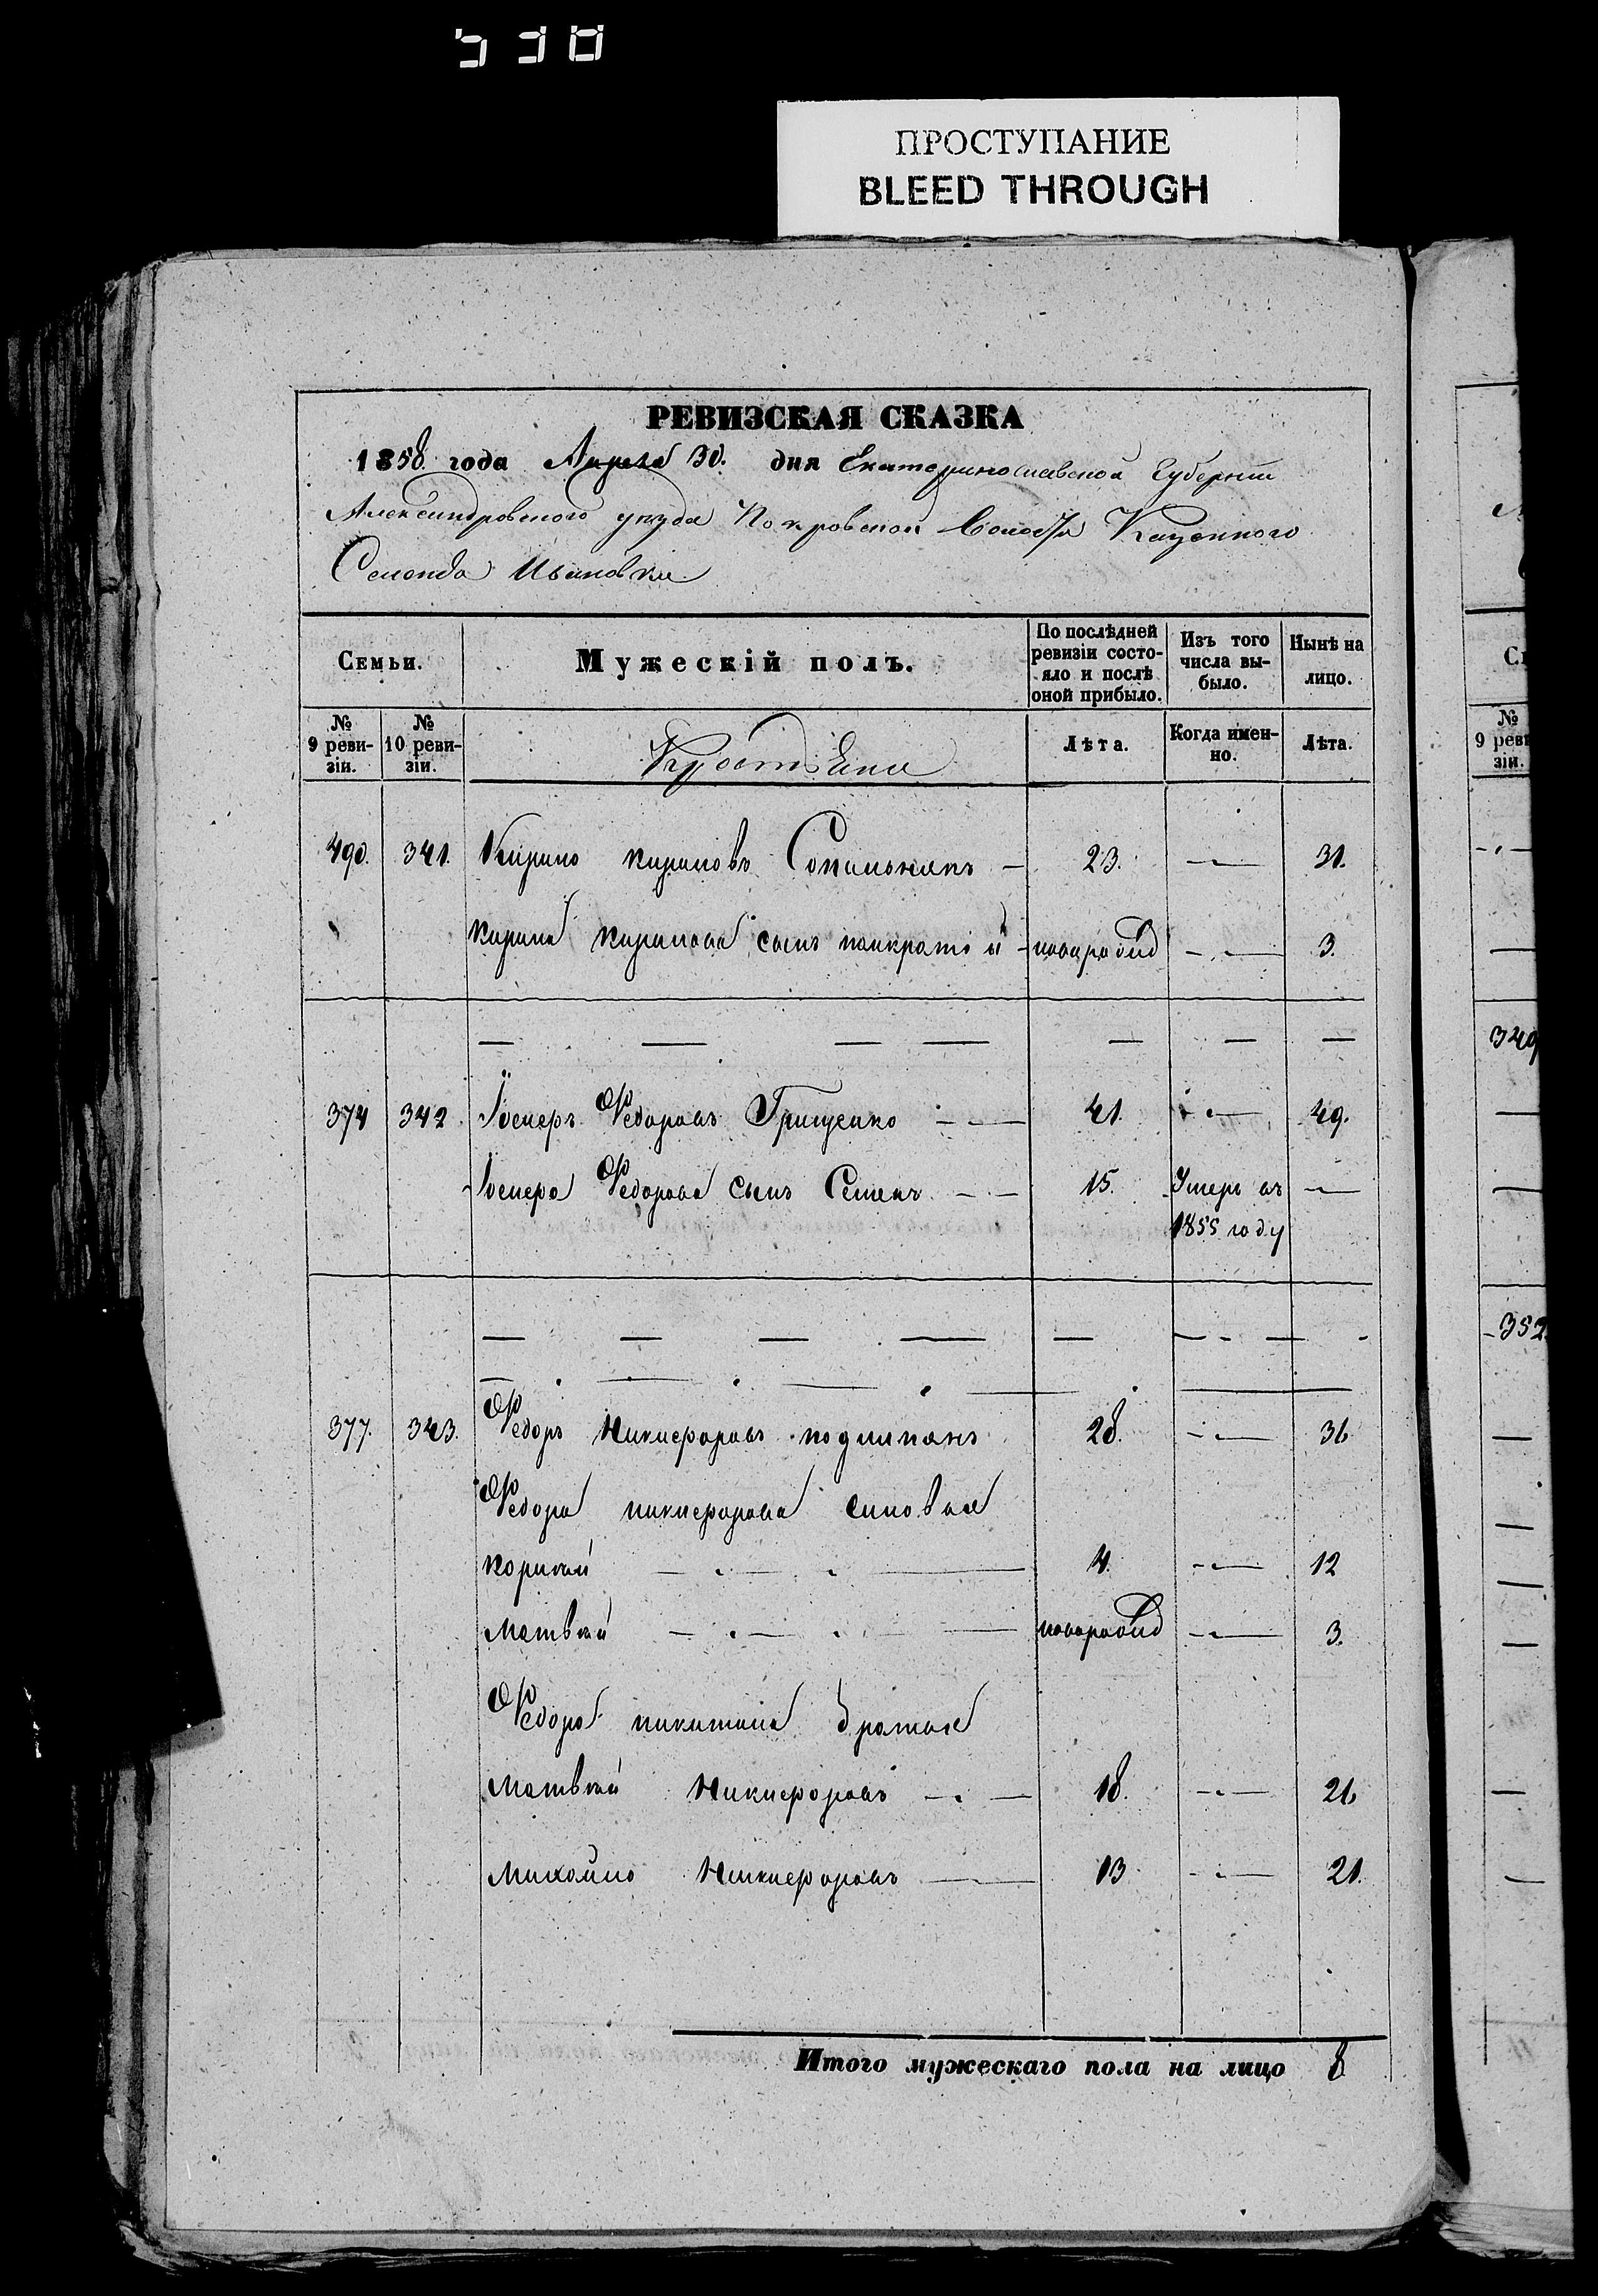 530
ПРОСТУПАНИЕ
BLEED THROUGH
РЕВИЗСКАЯ СКАЗКА
1858 года Апреля 30. дня Екатеринославской Губернии
Александровского уезда Покровской Волости Казенного
Селенда Ивановки
Семьи. Мужескій полъ. По послѣдней ревизіи состояло и послѣ оной прибыло. Изъ того числа выбыло. Нынѣ на лицо.
№ 9 ревизіи. № 10 ревизіи. Крестьяне Лѣта. Когда именно. Лѣта.
490. 341. Кирило Кириловъ — 23. — 31.
Кирила Кирилова сынъ панкратій новорожд — 3.
374 342. Федоровъ Грищенко — 41. — 49.
Федорова сынъ Семенъ — 15. Умеръ въ —
1855 году
377. 343. Федоръ Никифоровъ 28. — 36
Федора никифорова синовья
4. — 12
Матвей — новорожд — 3.
Федора никитина братья
Матвей Никифоровъ — 18. — 26
Михайло Никифоровъ — 13 — 21.
Итого мужескаго пола на лицо 8
№
9 реви-
зіи.
349
352